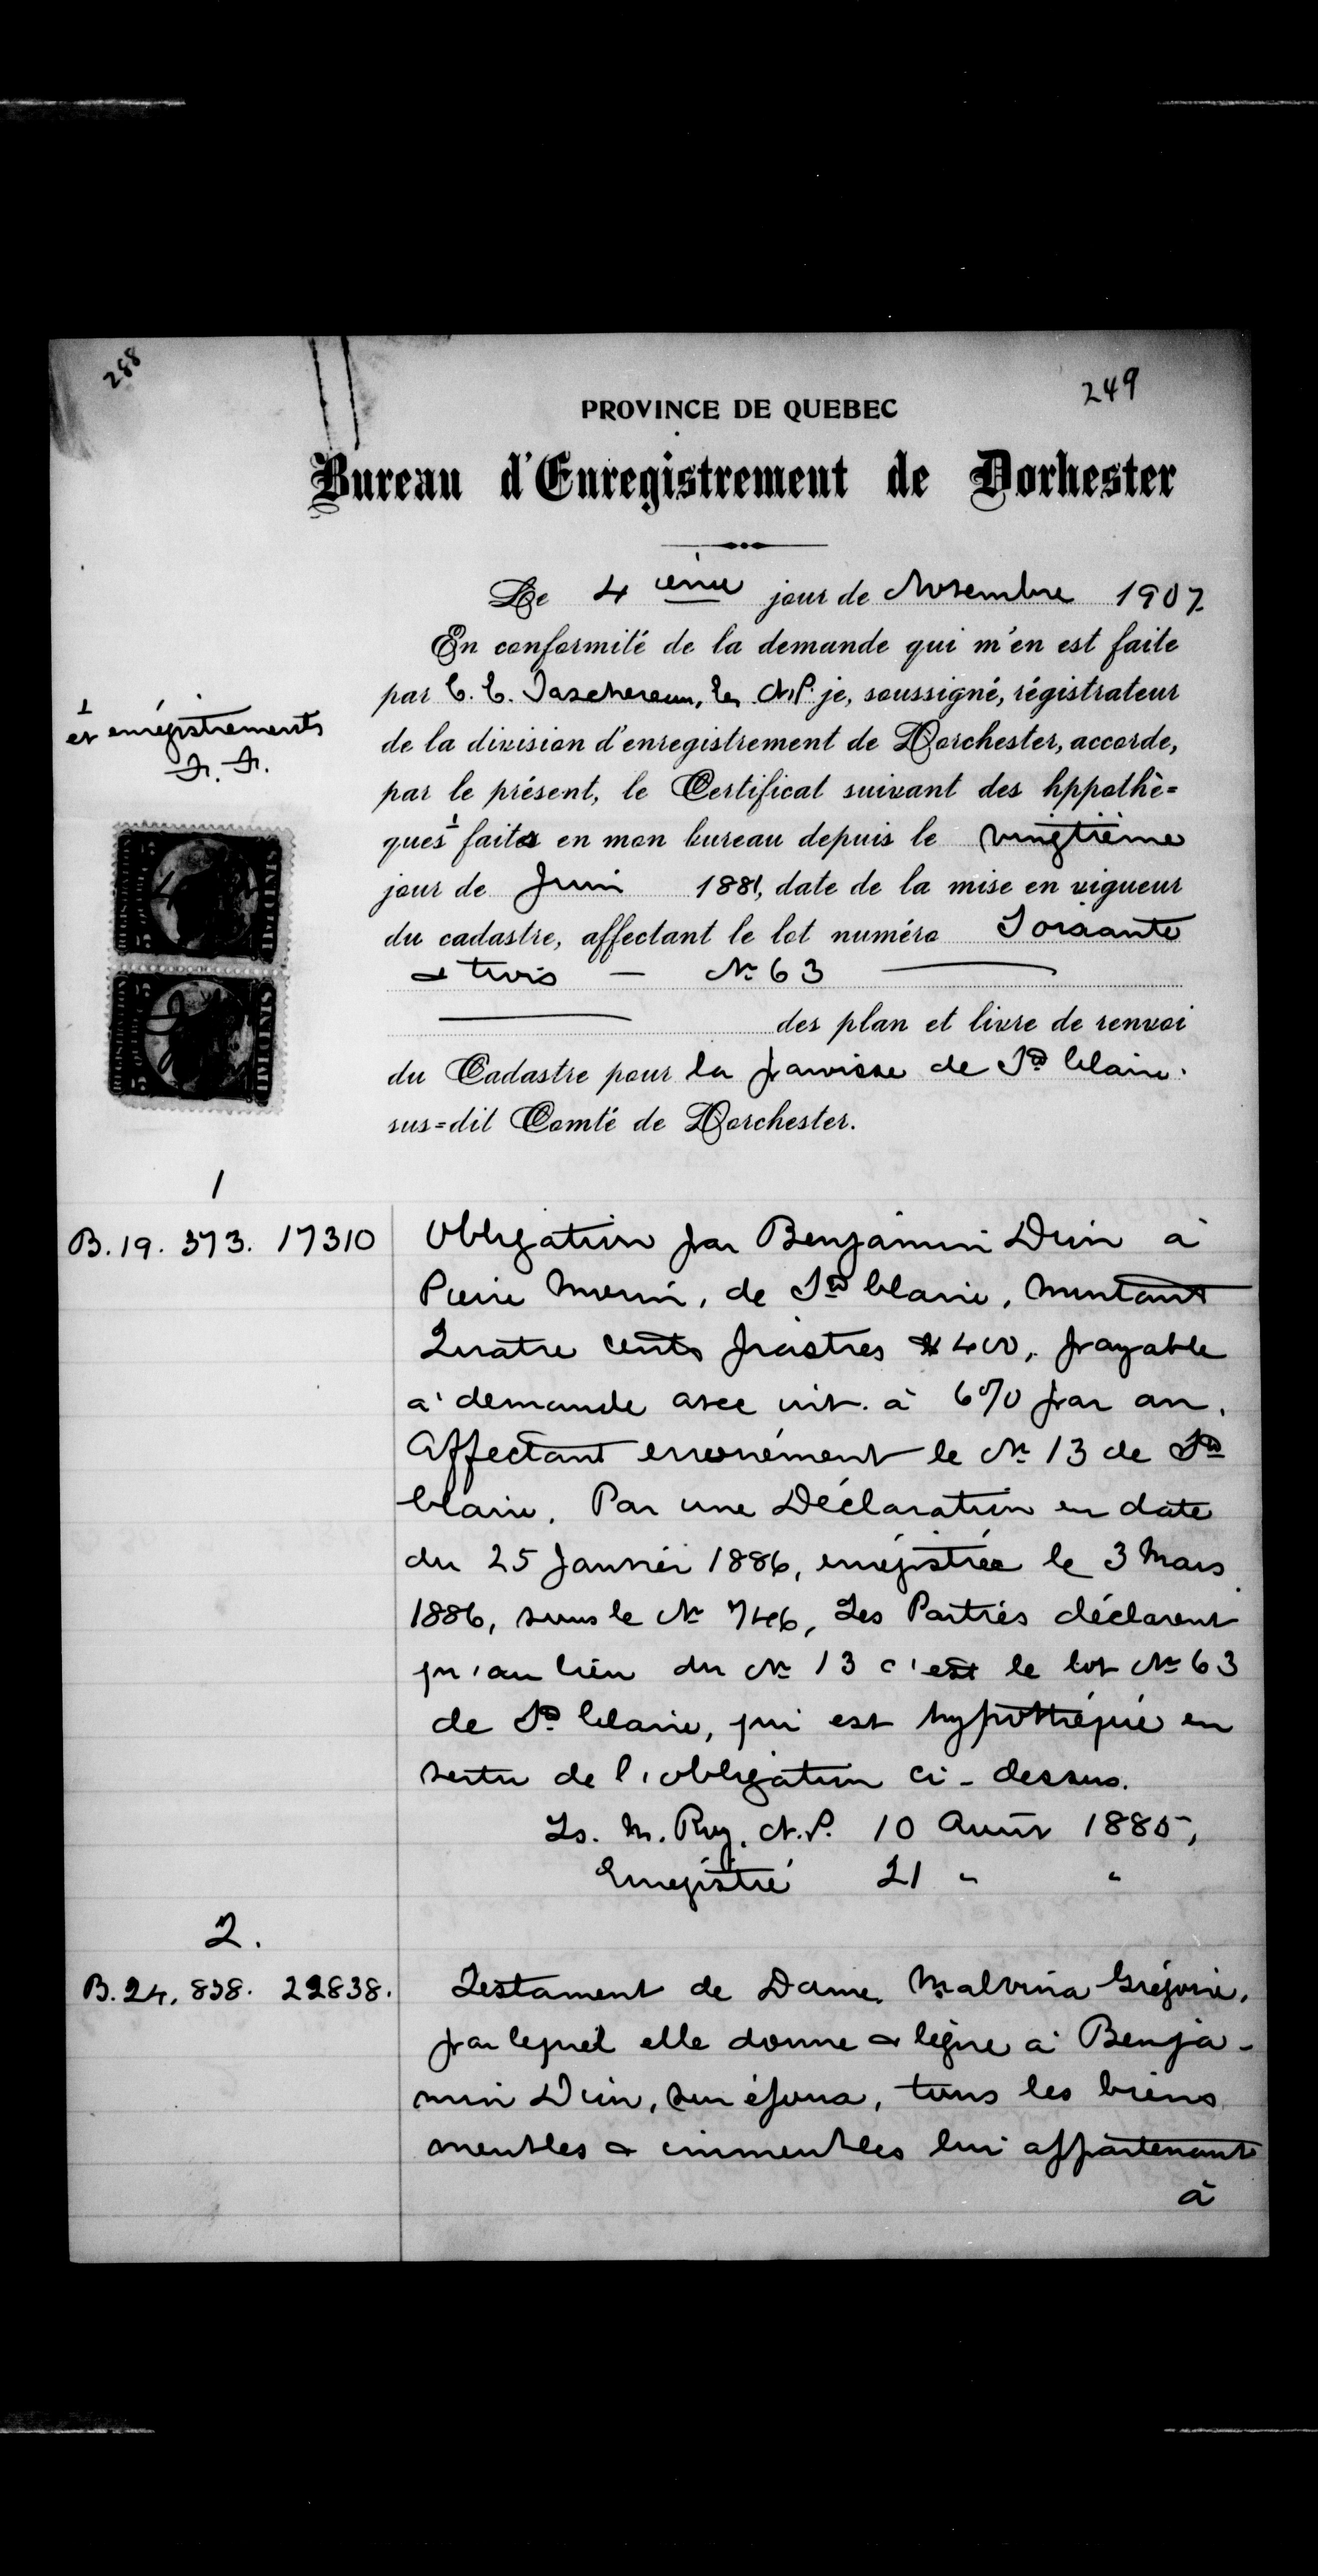 288
249
PROVINCE DE QUEBEC
Bureau d'Enregistrement de Dorhester
Le 4 ième jour de Novembre 1907
En conformité de la demande qui m'en est faite
par C. C. Taschereau, N.P. je, soussigné, régistrateur
de la division d'enregistrement de Dorchester, accorde,
par le présent, le Certificat suivant des hppothè=
ques ⊥ faits en mon bureau depuis le vingtième
jour de Juin 1881, date de la mise en vigueur
du cadastre, affectant le lot numéro Soixante
& trois — No 63
des plan et livre de renvoi
du Cadastre pour la paroisse de Ste Claire.
sus=dit Comté de Dorchester.
⊥ et enrégistrements
1
B. 19. 373. 17310
Obligation par Benjamin Dion à
Pierre Morin, de Ste Claire, montant
Quatre cents piastres $400, payable
à demande avec int. à 6% par an.
Affectant erronément le No 13 de Ste
Claire. Par une Déclaration en date
du 25 Janvier 1886, enrégistrée le 3 Mars
1886, sous le No 746, Les Parties déclarent
qu'au lieu du No 13 c'est le lot No 63
de Ste Claire, qui est hypothéqué en
vertu de l'obligation ci-dessus.
Ls. M. Roy. N.P. 10 Août 1885,
Enregistré 21 " "
2.
B. 24. 838. 22838.
Testament de Dame Malvina Grégoire,
par lequel elle donne & lègue à Benja-
min Dion, son époux, tous les biens
meubles & immeubles lui appartenant
à